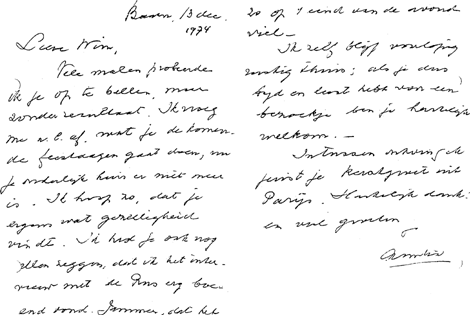 Baarn, 13 dec.
1974
Lieve Wim,
Vele malen probeerde
ik je op te bellen, maar
zonder resultaat. Ik vroeg
me n.l. af wat je de komen-
de feestdagen gaat doen, nu
je ouderlijk huis er niet meer
is. Ik hoop zo, dat je
ergens wat gezelligheid
vindt. Ik had je ook nog
willen zeggen, dat ik het inter-
view met de erg boei-
end vond. Jammer, dat het
zo op 't eind van de avond
viel -
Ik zelf blijf voorlopig
rustig thuis; als je dus
tijd en lust hebt voor een
bezoekje ben je hartelijk
welkom. -
Intussen ontving ik
juist je kerstgroet uit
Parijs. Hartelijk dank!
en veel groeten